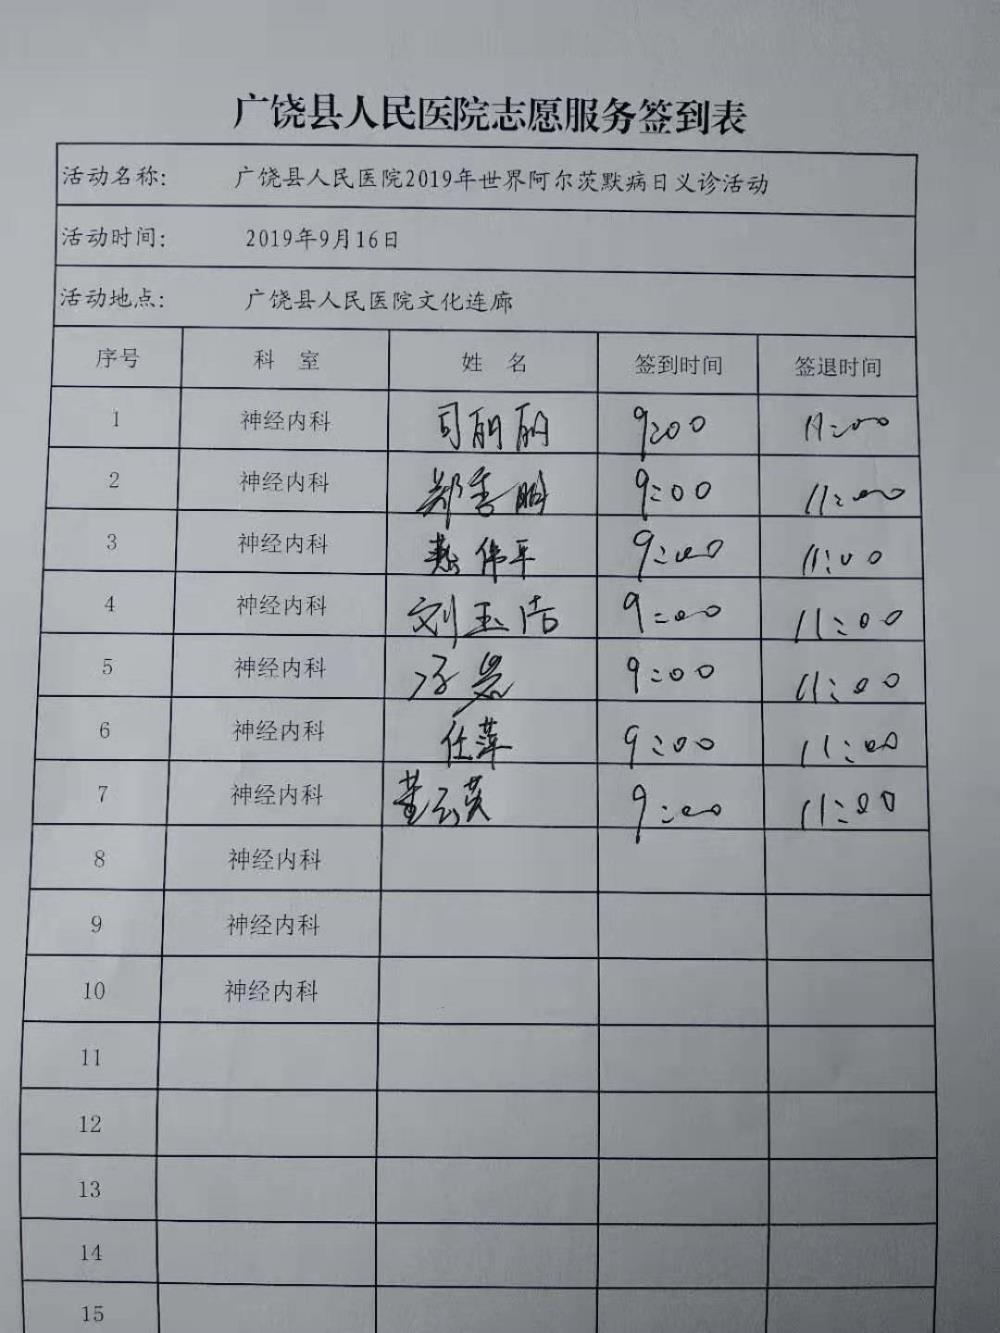 广饶县人民医院志愿服务签到表
活动名称： 广饶县人民医院2019年世界阿尔茨默病日义诊活动
活动时间： 2019年9月16日
活动地点： 广饶县人民医院文化连廊
序号 科 室 姓 名 签到时间 签退时间
1 神经内科 司丽丽 9:00 11:00
2 神经内科 郑秀鹏 9:00 11:00
3 神经内科 伟平 9:00 11:00
4 神经内科 刘玉洁 9:00 11:00
5 神经内科 9:00 11:00
6 神经内科 任萍 9:00 11:00
7 神经内科 董云英 9:00 11:00
8 神经内科
9 神经内科
10 神经内科
11
12
13
14
15